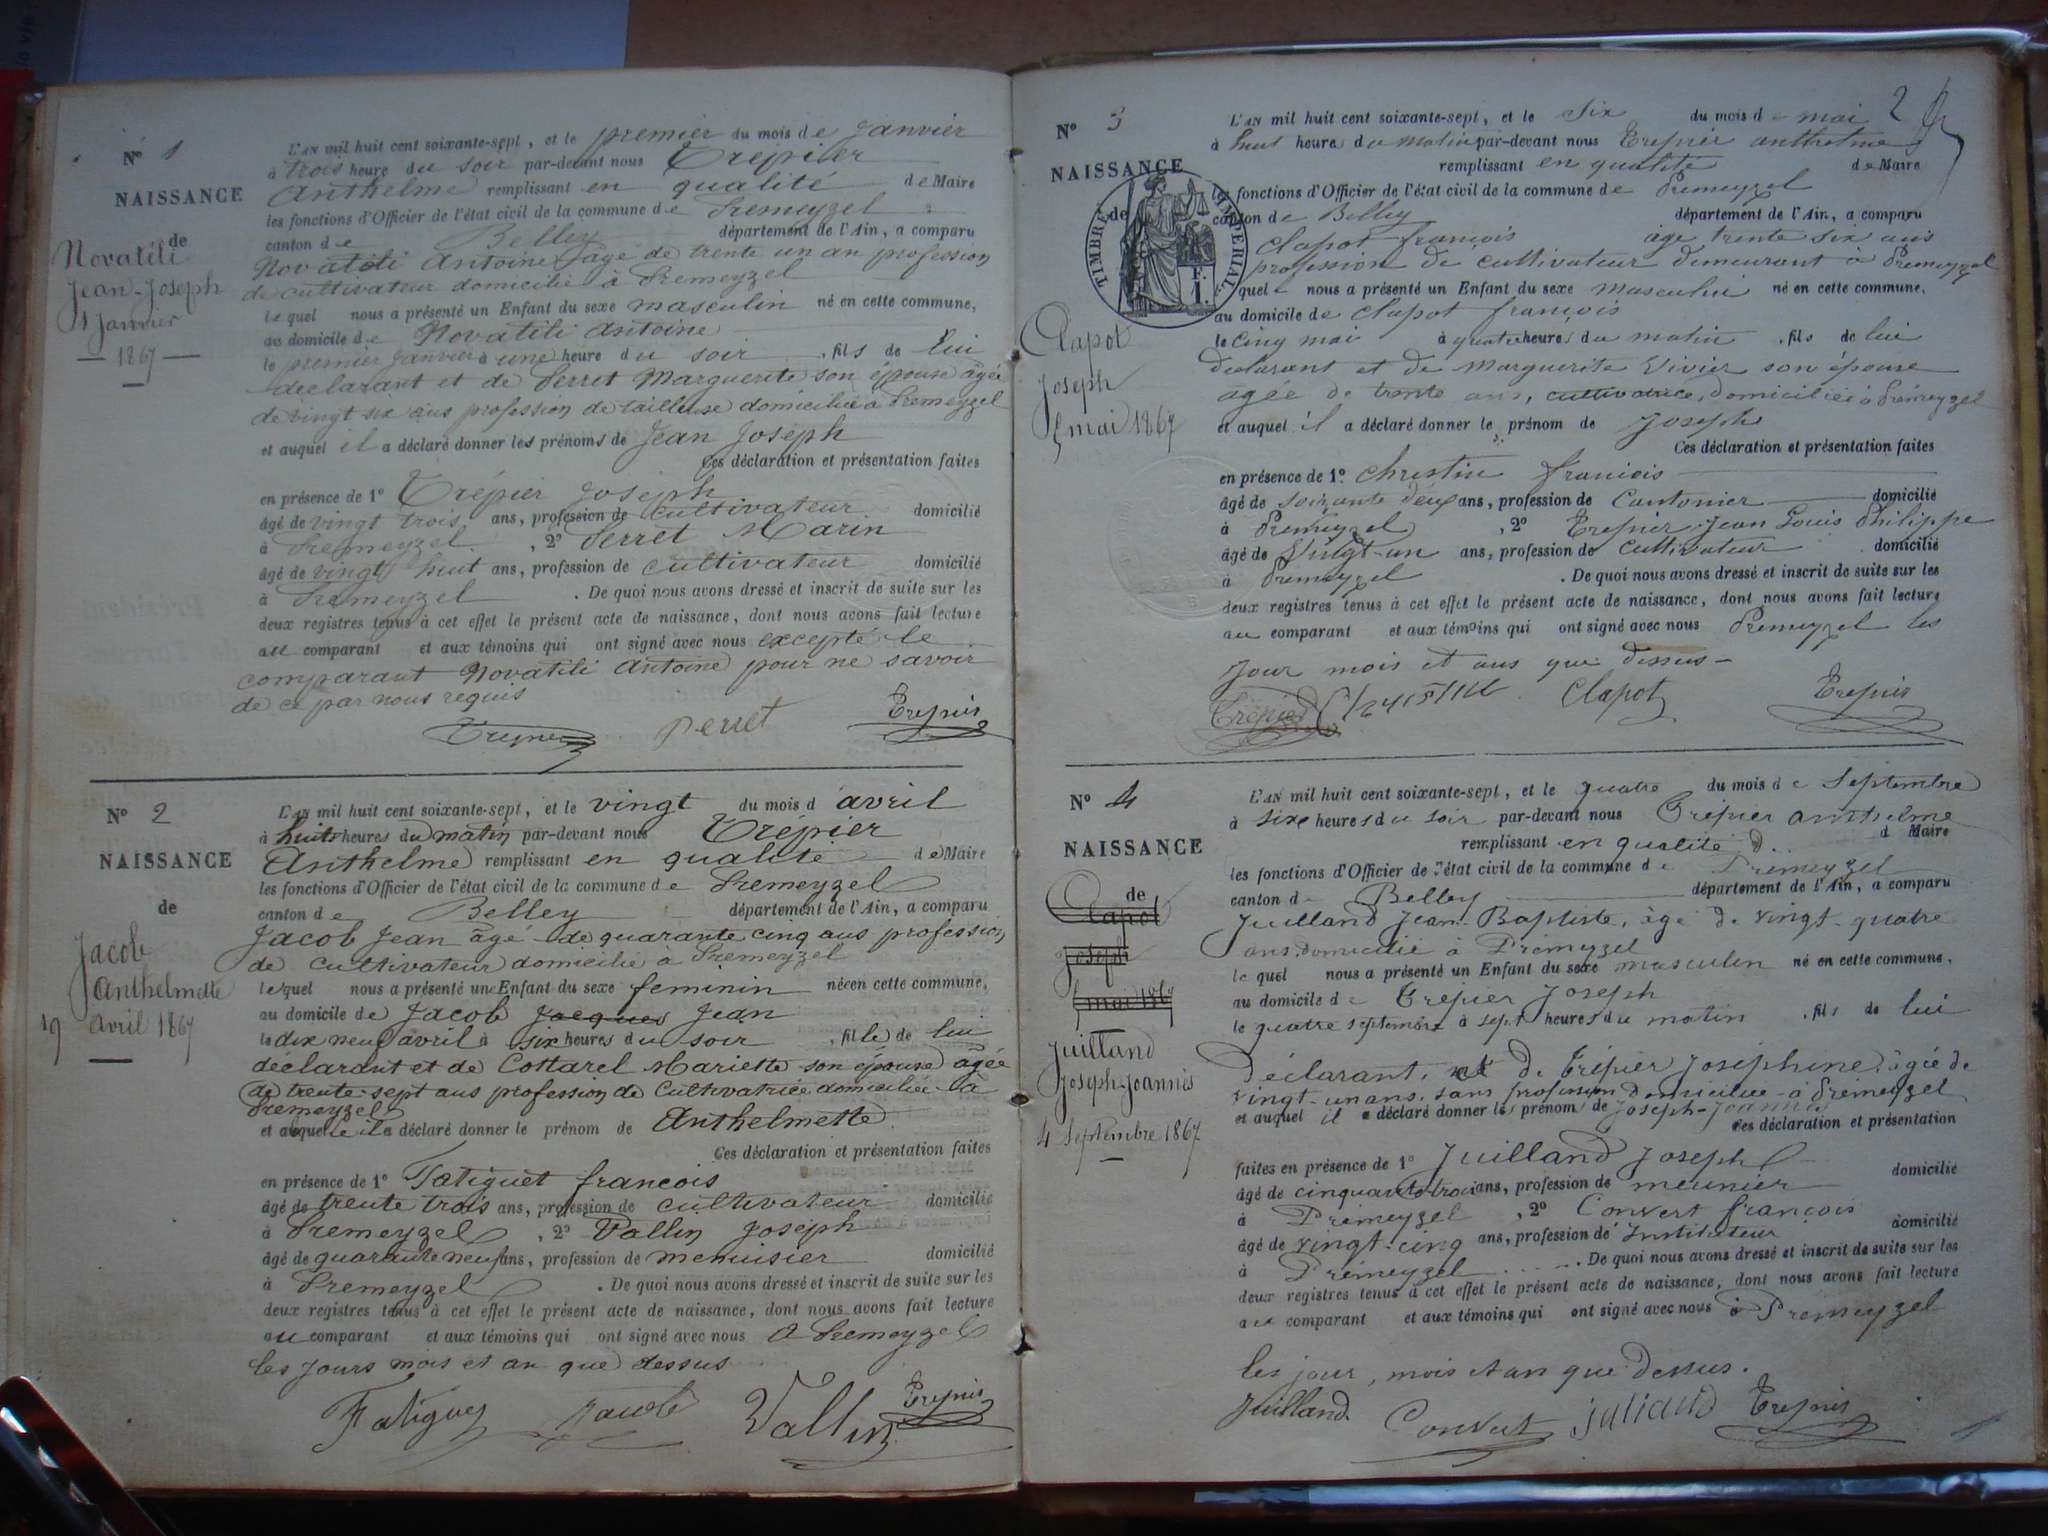 N° 1
NAISSANCE
de
Novatili
Jean-Joseph
1 Janvier
1867
L'AN mil huit cent soixante-sept, et le premier du mois de Janvier
à trois heure du soir par-devant nous Trépier
Anthelme remplissant en qualité de Maire
les fonctions d'Officier de l'état civil de la commune de Premeyzel
canton de Belley département de l'Ain, a comparu
Novatili Antoine âgé de trente un an profession
de cultivateur domicilié à Premeyzel
lequel nous a présenté un Enfant du sexe masculin né en cette commune,
au domicile de Novatili Antoine
le premier Janvier à une heure du soir, fils de lui
déclarant et de Perret Marguerite son épouse âgée
de vingt six ans profession de tailleuse domiciliée à Premeyzel
et auquel il a déclaré donner les prénoms de Jean Joseph
Ces déclaration et présentation faites
en présence de 1° Trépier Joseph
âgé de vingt trois ans, profession de cultivateur domicilié
à Premeyzel, 2° Perret Marin
âgé de vingt huit ans, profession de cultivateur domicilié
à Premeyzel. De quoi nous avons dressé et inscrit de suite sur les
deux registres tenus à cet effet le présent acte de naissance, dont nous avons fait lecture
au comparant et aux témoins qui ont signé avec nous excepté le
comparant Novatili Antoine pour ne savoir
de ce par nous requis
Trepier Perret Trepier
N° 2
NAISSANCE
de
Jacob
Anthelmette
19 avril 1867
L'AN mil huit cent soixante-sept, et le vingt du mois d avril
à huit heures du matin par-devant nous Trépier
Anthelme remplissant en qualité de Maire
les fonctions d'Officier de l'état civil de la commune de Premeyzel
canton de Belley département de l'Ain, a comparu
Jacob Jean âgé de quarante cinq ans profession
de cultivateur domicilié à Premeyzel
lequel nous a présenté un Enfant du sexe feminin née en cette commune,
au domicile de Jacob Jacques Jean
le dix neuf avril à six heures du soir, fille de lui
déclarant et de Cottarel Mariette son épouse âgée
de trente-sept ans profession de Cultivatrice domiciliée à
Premeyzel
et auquelle il a déclaré donner le prénom de Anthelmette
Ces déclaration et présentation faites
en présence de 1° Fatiguet francois
âgé de trente trois ans, profession de cultivateur domicilié
à Premeyzel, 2° Vallin Joseph
âgé de quarante neuf ans, profession de menuisier domicilié
à Premeyzel. De quoi nous avons dressé et inscrit de suite sur les
deux registres tenus à cet effet le présent acte de naissance, dont nous avons fait lecture
au comparant et aux témoins qui ont signé avec nous à Premeyzel
les jours mois et an que dessus
Fatiguet Jacob Vallin Trepier
2
N° 3
NAISSANCE
de
TIMBRE IMPERIAL
Clapot
Joseph
5 mai 1867
L'AN mil huit cent soixante-sept, et le Six du mois de mai
à huit heure du matin par-devant nous Trepier anthelme
remplissant en qualité de Maire
les fonctions d'Officier de l'état civil de la commune de Premeyzel
canton de Belley département de l'Ain, a comparu
Clapot françois âge trente six ans
profession de cultivateur demeurant à Premeyzel
quel nous a présenté un Enfant du sexe masculin né en cette commune,
au domicile de Clapot françois
le cinq mai à quatre heures du matin, fils de lui
déclarant et de Marguerite Vivier son épouse
agée de trente ans, cultivatrice, domiciliée à Prémeyzel
et auquel il a déclaré donner le prénom de Joseph
Ces déclaration et présentation faites
en présence de 1° Christin francois
âgé de soixante deux ans, profession de Cantonier domicilié
à Premeyzel, 2° Trepier Jean Louis Philippe
âgé de Vingt-un ans, profession de cultivateur domicilié
à Premeyzel. De quoi nous avons dressé et inscrit de suite sur les
deux registres tenus à cet effet le présent acte de naissance, dont nous avons fait lecture
au comparant et aux témoins qui ont signé avec nous Premeyzel les
Jour mois et ans que dessus
Trépier Clapot Trepier
N° 4
NAISSANCE
de
Clapot
Joseph
5 mai 1867
Juilland
Joseph-Joannès
4 Septembre 1867
L'AN mil huit cent soixante-sept, et le quatre du mois de Septembre
à six heures du soir par-devant nous Trépier anthelme
remplissant en qualité d Maire
les fonctions d'Officier de l'état civil de la commune de Prémeyzel
canton d Belley département de l'Ain, a comparu
Juilland Jean-Baptiste, âgé de vingt-quatre
ans, domicilié à Prémeyzel
lequel nous a présenté un Enfant du sexe masculin né en cette commune,
au domicile de Trépier Joseph
le quatre septembre à sept heures du matin, fils de lui
Déclarant, et de Trépier Joséphine, âgée de
vingt-un ans, sans profession, domiciliée à Prémeyzel
et auquel il a déclaré donner les prénom de Joseph-Joannès
Ces déclaration et présentation
faites en présence de 1° Juilland Joseph
âgé de cinquante-trois ans, profession de meunier domicilié
à Prémeyzel, 2° Convert françois
âgé de vingt-cinq ans, profession de Instituteur domicilié
à Prémeyzel. De quoi nous avons dressé et inscrit de suite sur les
deux registres tenus à cet effet le présent acte de naissance, dont nous avons fait lecture
au comparant et aux témoins qui ont signé avec nous à Prémeyzel
les jour, mois et an que dessus.
Juilland Convert juliand Trepier